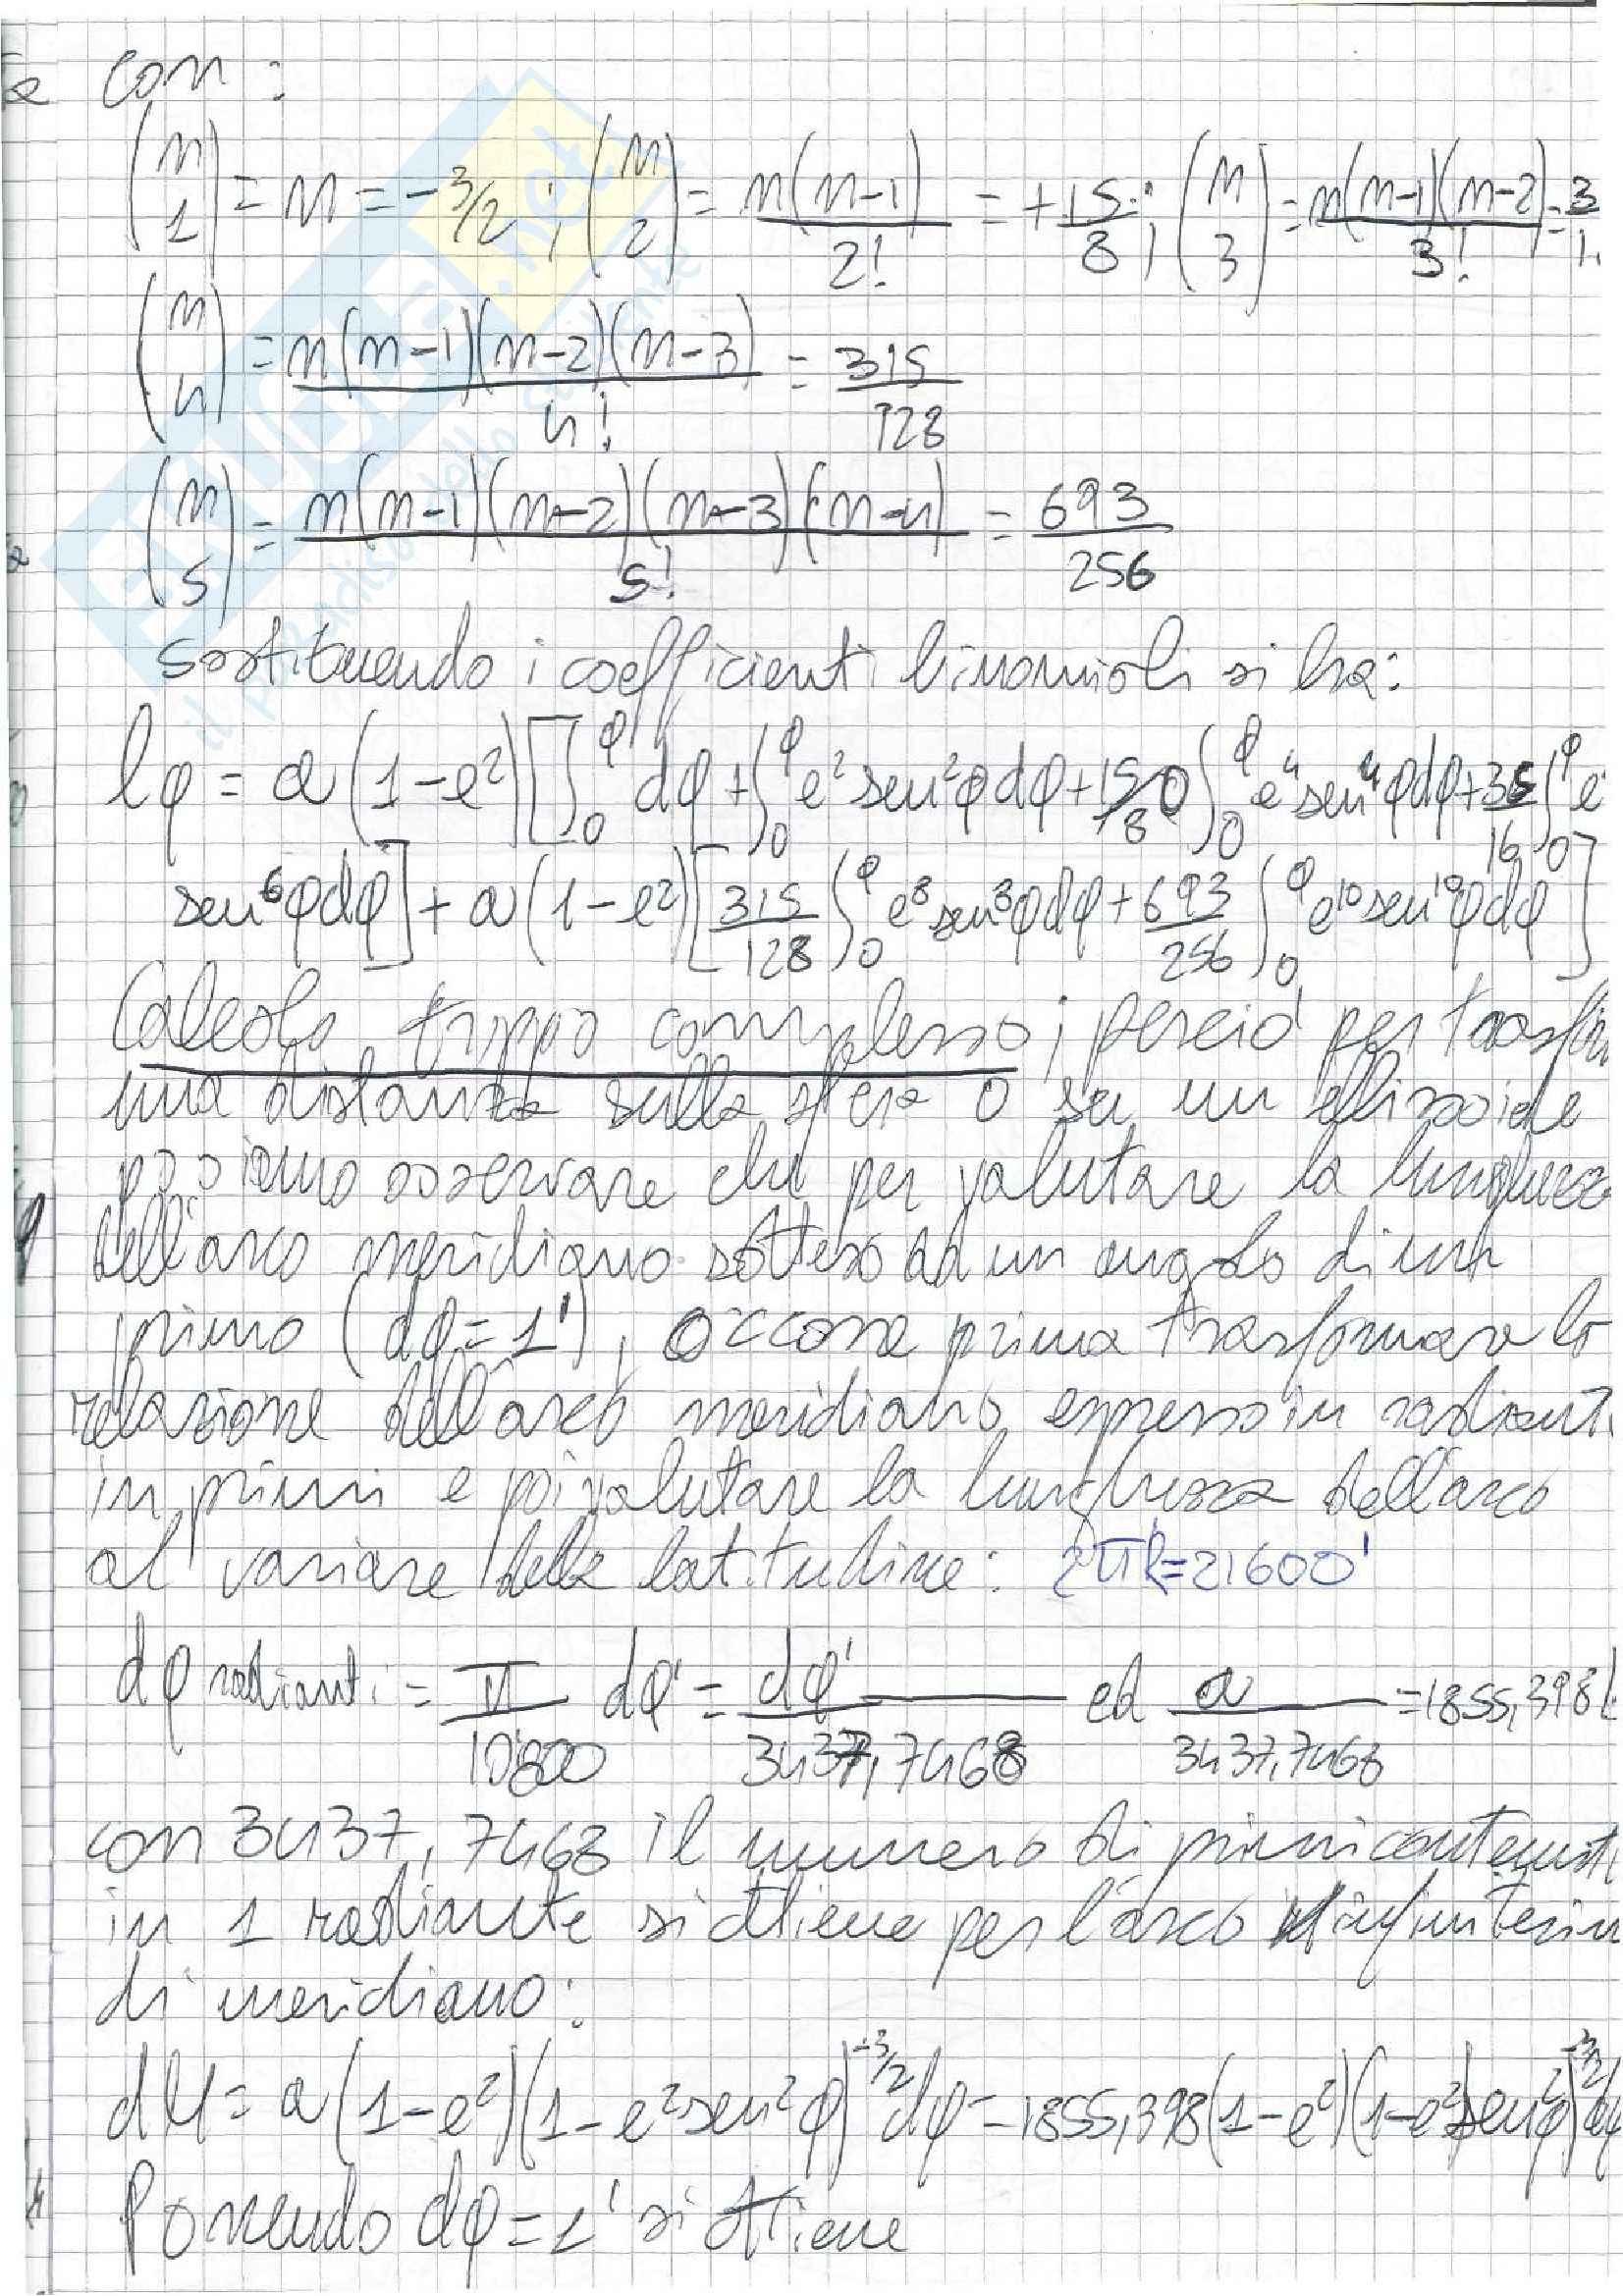 e con:
(n 1) = n = -3/2 ; (n 2) = n(n-1)/2! = +15/8 ; (n 3) = n(n-1)(n-2)/3! = 3/1
(n 4) = n(n-1)(n-2)(n-3)/4! = 315/128
(n 5) = n(n-1)(n-2)(n-3)(n-4)/5! = 693/256
sostituendo i coefficienti binomiali si ha:
lφ = a(1-e²)[∫₀^φ dφ + ∫₀^φ e² sen²φ dφ + 15/8 ∫₀^φ e⁴ sen⁴φ dφ + 35/16 ∫₀^φ e
sen⁶φ dφ] + a(1-e²)[315/128 ∫₀^φ e⁸ sen⁸φ dφ + 693/256 ∫₀^φ e¹⁰ sen¹⁰φ dφ]
Calcolo troppo complesso; perciò per trasfor
una distanza sulla sfera o su un ellissoide
possiamo osservare che per valutare la lunghezza
dell'arco meridiano sotteso ad un angolo di un
primo (dφ = 1'), occorre prima trasformare la
relazione dell'arco meridiano espresso in radianti
in primi e poi valutare la lunghezza dell'arco
al variare della latitudine: 2πR=21600'
dφ radianti = π/10800 dφ' = dφ'/3437,7468 ed a/3437,7468 = 1855,398
con 3437,7468 il numero di primi contenuti
in 1 radiante si ottiene per l'arco infinitesim
di meridiano:
dM = a(1-e²)(1-e² sen²φ)^-3/2 dφ = 1855,398(1-e²)(1-e² sen²φ)^-3/2 dφ
Ponendo dφ = 1' si ottiene